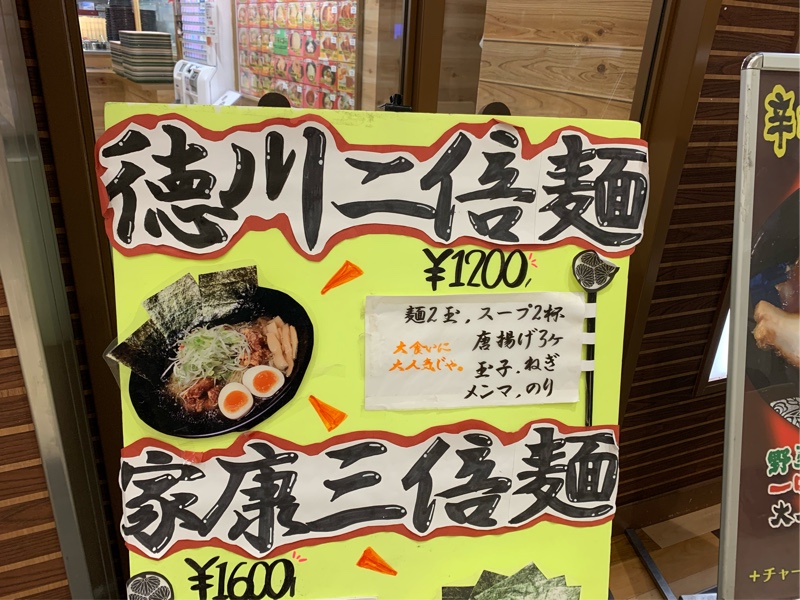 徳川二倍麺
¥1200
麺2玉,スープ2杯
唐揚げ3ヶ
玉子,ねぎ
メンマ,のり
大食いに
大人気じゃ。
家康三倍麺
¥1600
辛
野
一
大
+チャー